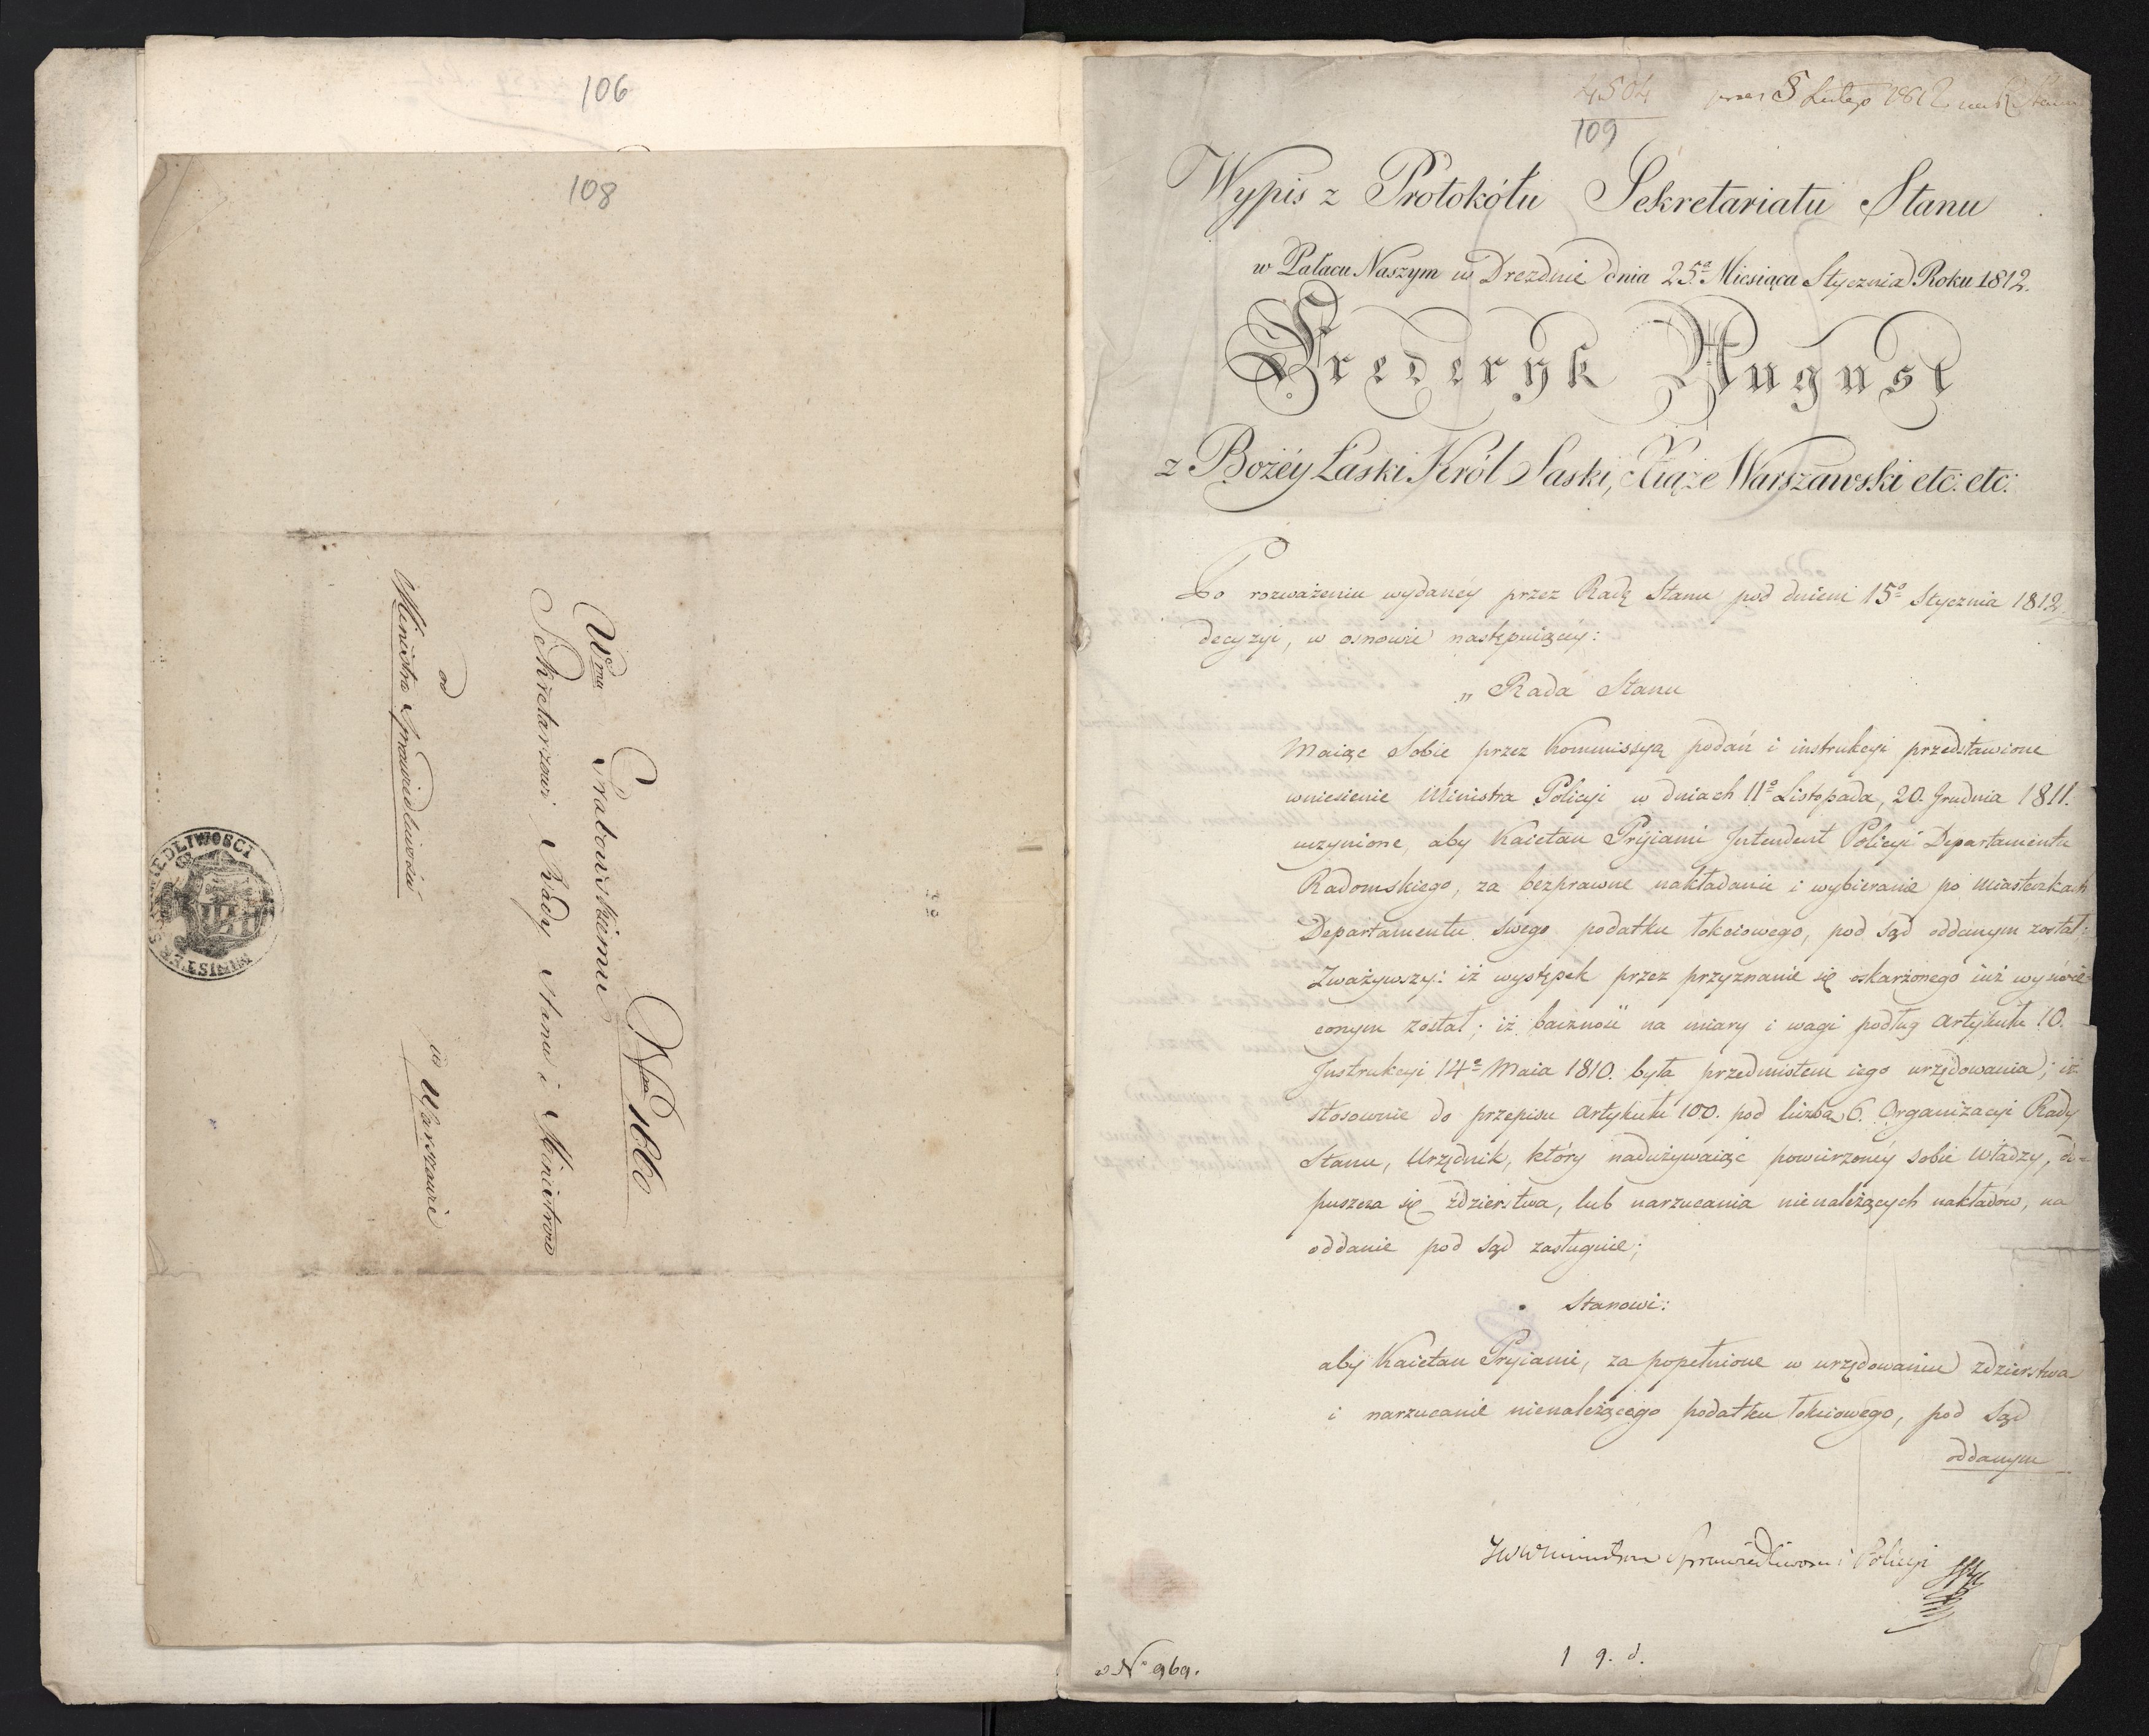 106
108
Wmu Grabowskiemu
Sekretarzowi Rady Stanu i Ministrów
Nro 1660
od
Ministra Sprawiedliwości
w Warszawie
MINISTER SPRAWIEDLIWOSCI
4504
109
5 Lutego 1812
Wypis z Protokółu Sekretariatu Stanu
w Pałacu Naszym w Dreznie dnia 25º Miesiąca Stycznia Roku 1812.
Frederyk August
z Bożéy Łaski Król Saski, Xiąże Warszawski etc: etc:
Po rozważeniu wydanéy przez Radę Stanu pod dniem 15º Stycznia 1812.
decyzyi, w osnowie następuiącey:
„ Rada Stanu
Maiąc Sobie przez Kommissyą podań i instrukcyi przedstawione
wniesienie Ministra Policyi w dniach 11º Listopada, 20. Grudnia 1811.
uczynione, aby Kaietan Pryiami Intendent Policyi Departamentu
Radomskiego, za bezprawne nakładanie i wybieranie po Miasteczkach
Departamentu swego podatku łokciowego, pod Sąd oddanym został;
Zważywszy: iż występek przez przyznanie się oskarżonego iuż wyświe=
conym został; iż baczność na miary i wagi podług Artykułu 10.
Instrukcyi 14º Maia 1810. była przedmiotem iego urzędowania; iż
stosownie do przepisu Artykułu 100. pod liczbą 6. Organizacyi Rady
Stanu, Urzędnik, który nadużywaiąc powierzonéy sobie Władzy, do=
puszcza się zdzierstwa, lub narzucania nienależących nakładów, na
oddanie pod Sąd zasługuie;
Stanowi:
aby Kaietan Pryiami, za popełnione w urzędowaniu zdzierstwa
i narzucanie nienależącego podatku łokciowego, pod Sąd
oddanym
JWW Ministrom Sprawiedliwości i Policyi
Nº 969.
1 g. d.